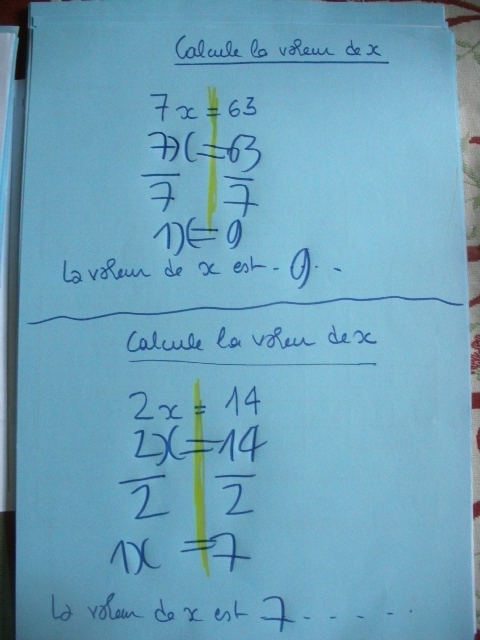 Calcule la valeur de x
7x = 63
7x = 63
7 7
1x = 9
la valeur de x est - 9 . . -
Calcule la valeur de x
2x = 14
2x = 14
2 2
1x = 7
la valeur de x est 7 - - - - . .